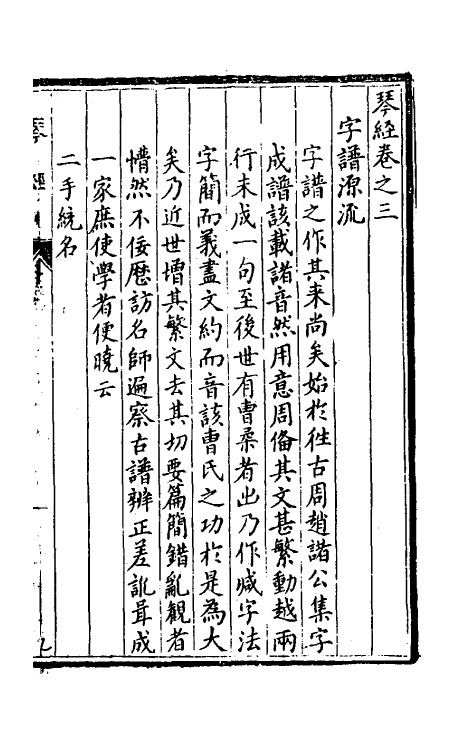 琴經卷之三
字譜源流
字譜之作其来尚矣始於徃古周趙諸公集字
成譜該載諸音然用意周偹其文甚繁動越兩
行未成一句至後世有曹桑者出乃作减字法
字簡而義盡文約而音該曹氏之功於是為大
矣乃近世增其繁文去其切要篇簡錯亂観者
懵然不佞歴訪名師遍察古譜辨正差訛葺成
一家庶使學者便曉云
二手統名
琴經